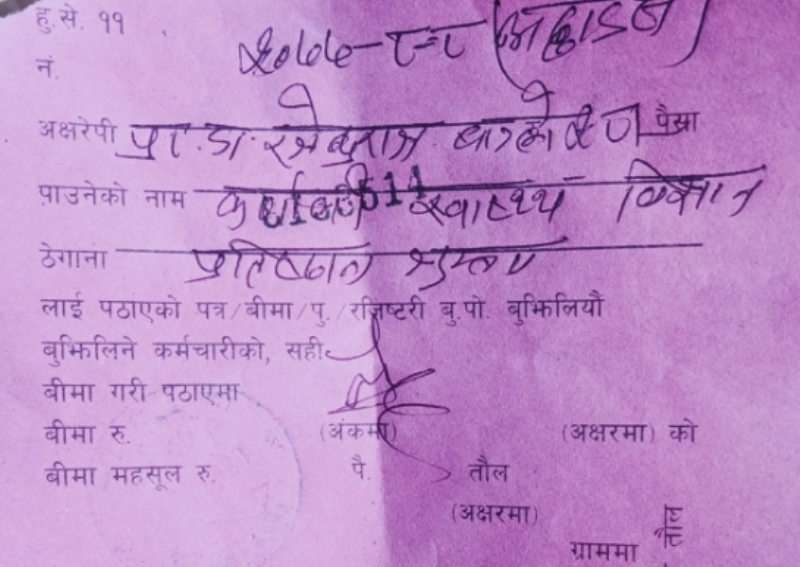 हु.से. ११
२०७७-८-८
नं.
अक्षरेपी प्रा.डा. पैसा
पाउनेको नाम कर्णाली स्वास्थ्य विज्ञान
ठेगाना प्रतिष्ठान जुम्ला
लाई पठाएको पत्र/बीमा/पु./रजिष्टरी बु.पो. बुझिलियौं
बुझिलिने कर्मचारीको, सही
बीमा गरी पठाएमा
बीमा रु. (अंकमा) (अक्षरमा) को
बीमा महसूल रु. पै. तौल
(अक्षरमा)
ग्राममा